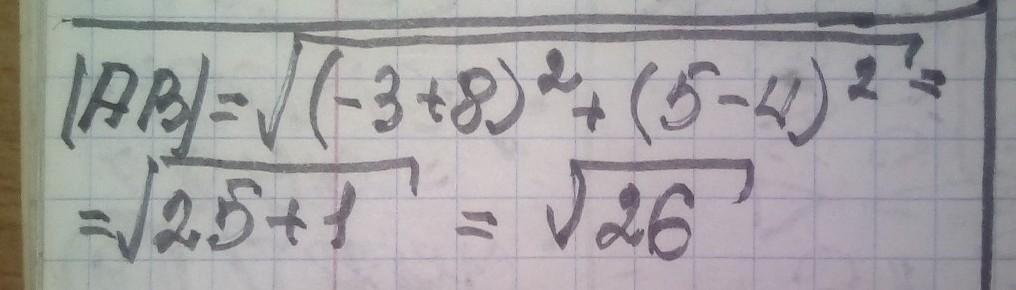 |AB| = √(-3+8)² + (5-4)² =
= √25+1 = √26